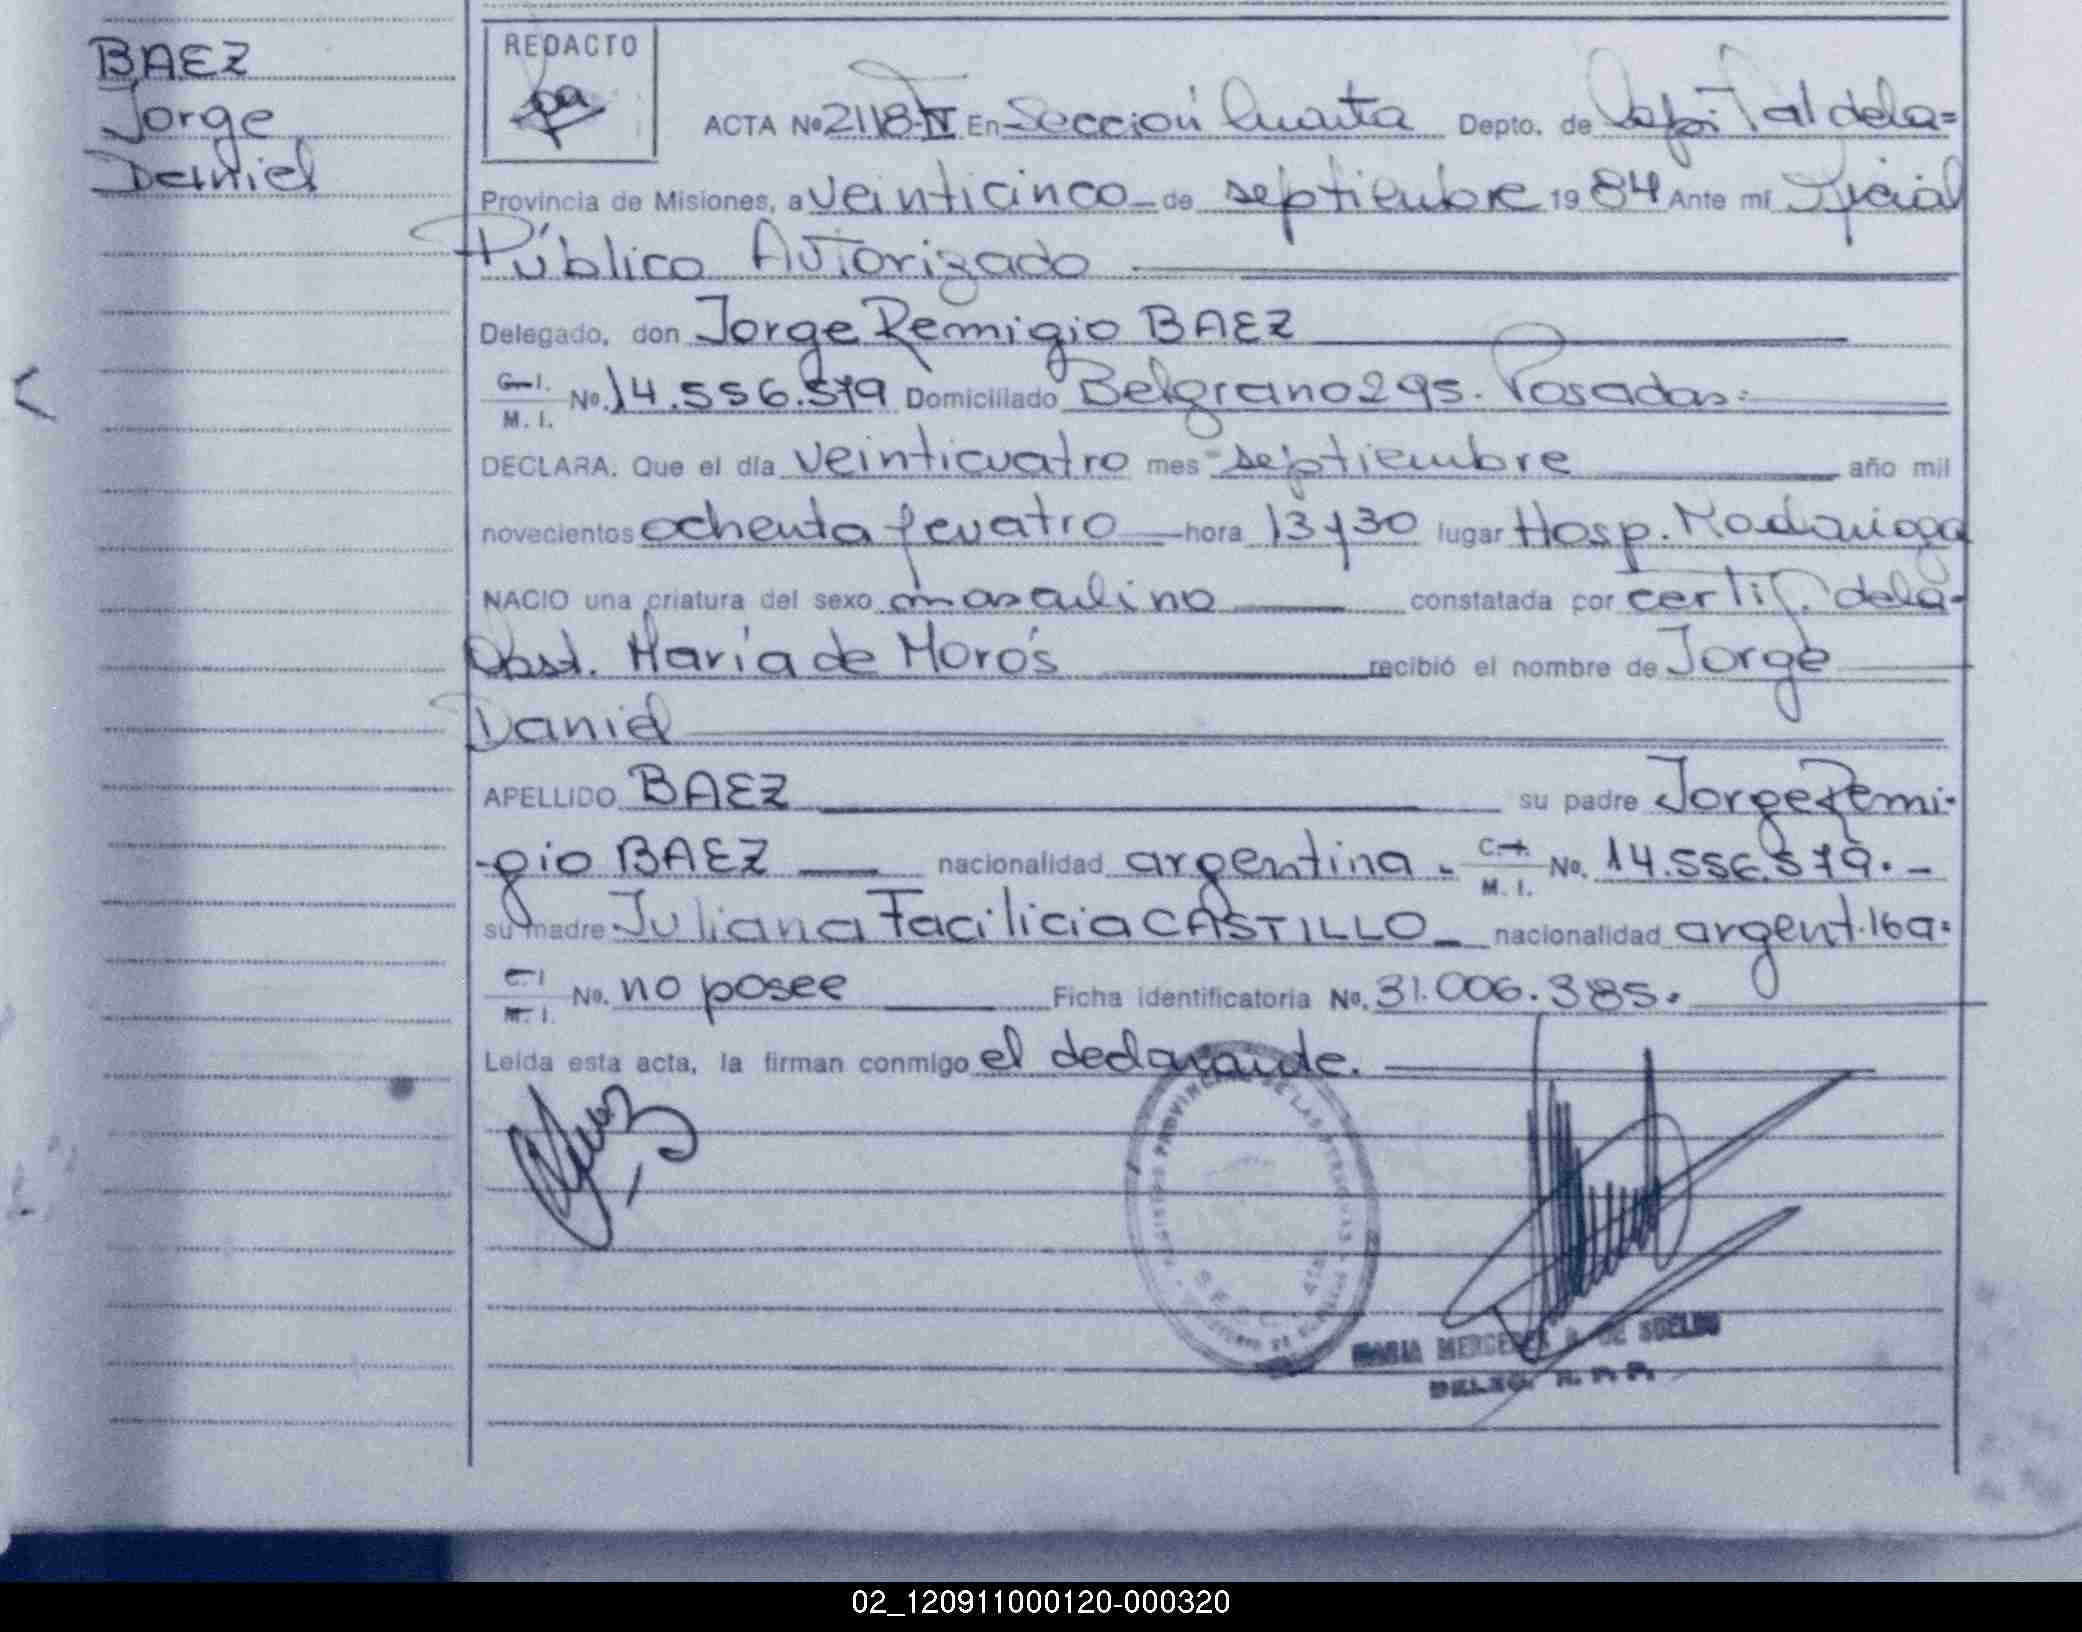 BAEZ
Jorge
Daniel
REDACTO
ACTA Nº 2118-IV En Sección Cuarta Depto. de Capital de la=
Provincia de Misiones, a veinticinco de septiembre 1984 Ante mí Oficial
Público Autorizado
Delegado, don Jorge Remigio BAEZ
C. I. M. I. No. 14.556.579 Domiciliado Belgrano 295. Posadas=
DECLARA. Que el día veinticuatro mes septiembre año mil
novecientos ochenta y cuatro hora 13 y 30 lugar Hosp. Madariaga
NACIO una criatura del sexo masculino constatada por certif. de la-
Obst. María de Morós recibió el nombre de Jorge
Daniel
APELLIDO BAEZ su padre Jorge Remi-
-gio BAEZ nacionalidad argentina. C. I. M. I. No. 14.556.579.-
su madre Juliana Facilicia CASTILLO nacionalidad argent. 16 a=
C. I. M. I. No. no posee Ficha identificatoria No. 31.006.385.
Leída esta acta, la firman conmigo el declarante.
MARIA MERCEDES DE
DELEG. R. P. P.
02_120911000120-000320